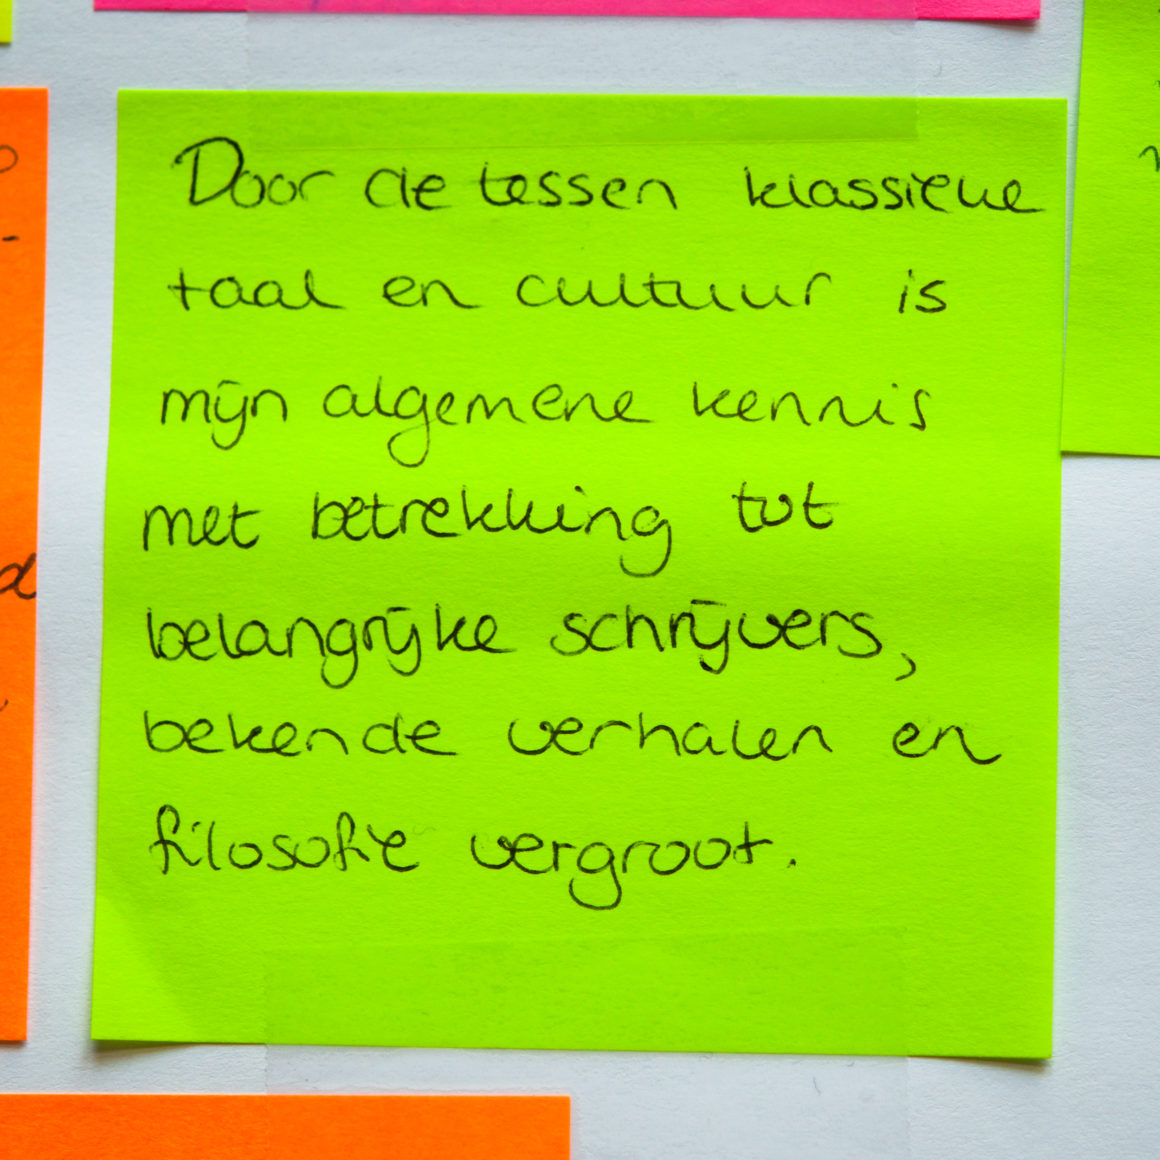 Door de lessen klassieke
taal en cultuur is
mijn algemene kennis
met betrekking tot
belangrijke schrijvers,
bekende verhalen en
filosofie vergroot.